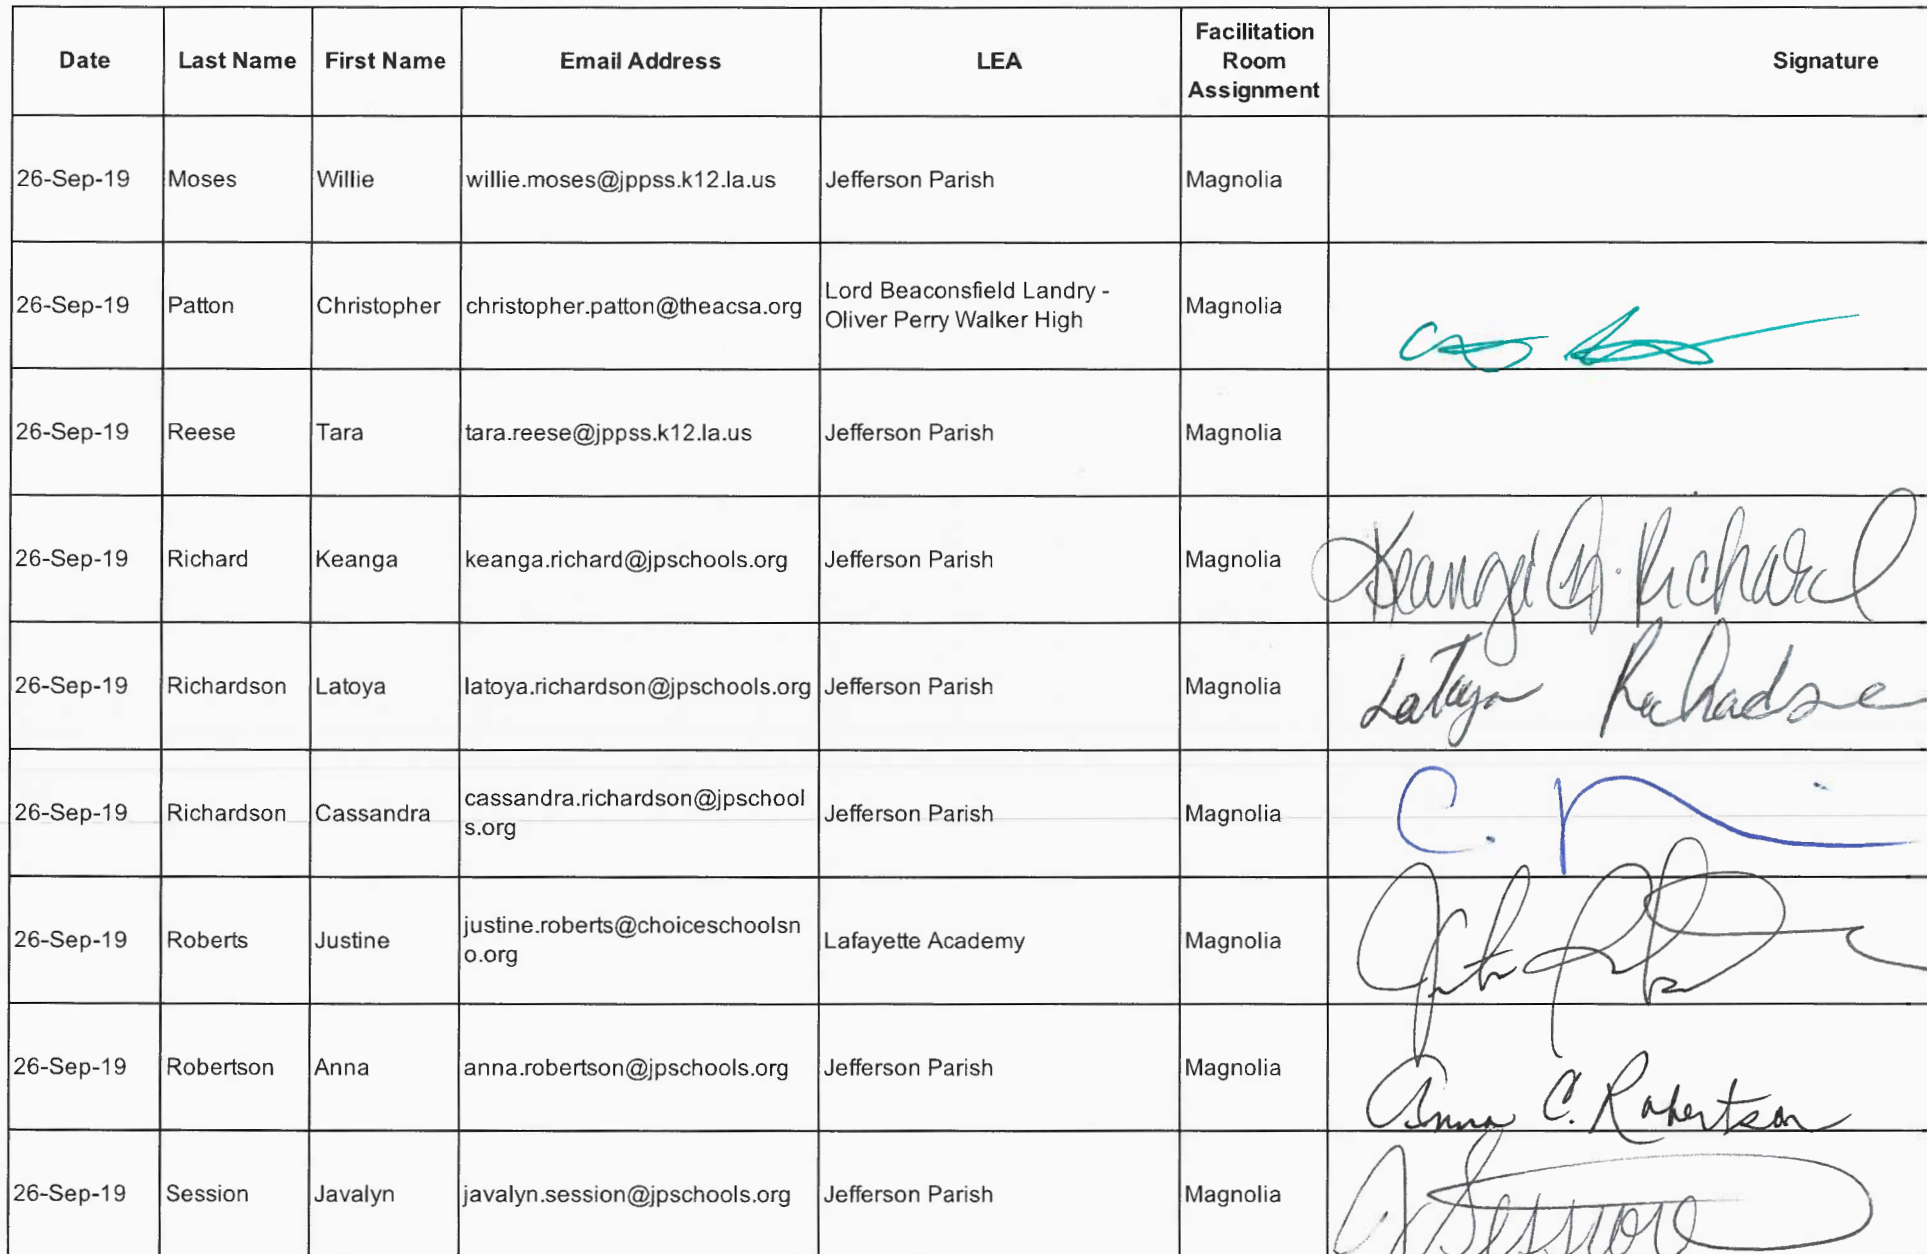 Date Last Name First Name Email Address LEA Facilitation Room Assignment Signature
26-Sep-19 Moses Willie willie.moses@jppss.k12.la.us Jefferson Parish Magnolia
26-Sep-19 Patton Christopher christopher.patton@theacsa.org Lord Beaconsfield Landry - Oliver Perry Walker High Magnolia
26-Sep-19 Reese Tara tara.reese@jppss.k12.la.us Jefferson Parish Magnolia
26-Sep-19 Richard Keanga keanga.richard@jpschools.org Jefferson Parish Magnolia Keanga Richard
26-Sep-19 Richardson Latoya latoya.richardson@jpschools.org Jefferson Parish Magnolia Latoya Richardson
26-Sep-19 Richardson Cassandra cassandra.richardson@jpschools.org Jefferson Parish Magnolia C.
26-Sep-19 Roberts Justine justine.roberts@choiceschoolsno.org Lafayette Academy Magnolia
26-Sep-19 Robertson Anna anna.robertson@jpschools.org Jefferson Parish Magnolia Anna C. Robertson
26-Sep-19 Session Javalyn javalyn.session@jpschools.org Jefferson Parish Magnolia J Session